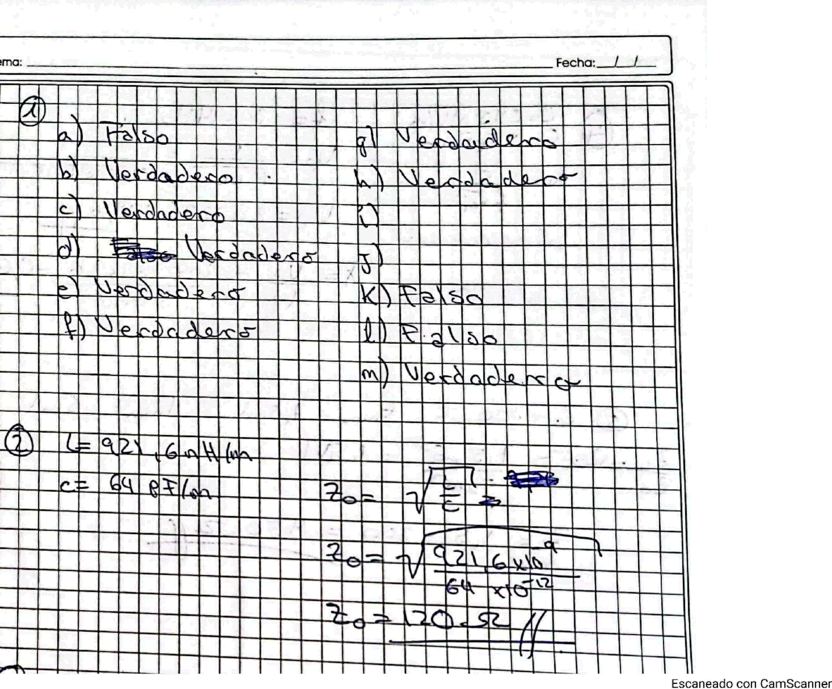 ema: Fecha: / /
1
a) Falso
b) Verdadero
c) Verdadero
d) Verdadero
e) Verdadero
f) Verdadero
g) Verdaidero
h) Verdadero
i)
J)
K) Falso
l) Falso
m) Verdadero
2
L= 921,6 nH/m
c= 64 pF/m
Zo = √L/C =
Zo = √921,6 x10^-9 / 64 x10^-12
Zo = 120 Ω //
Escaneado con CamScanner